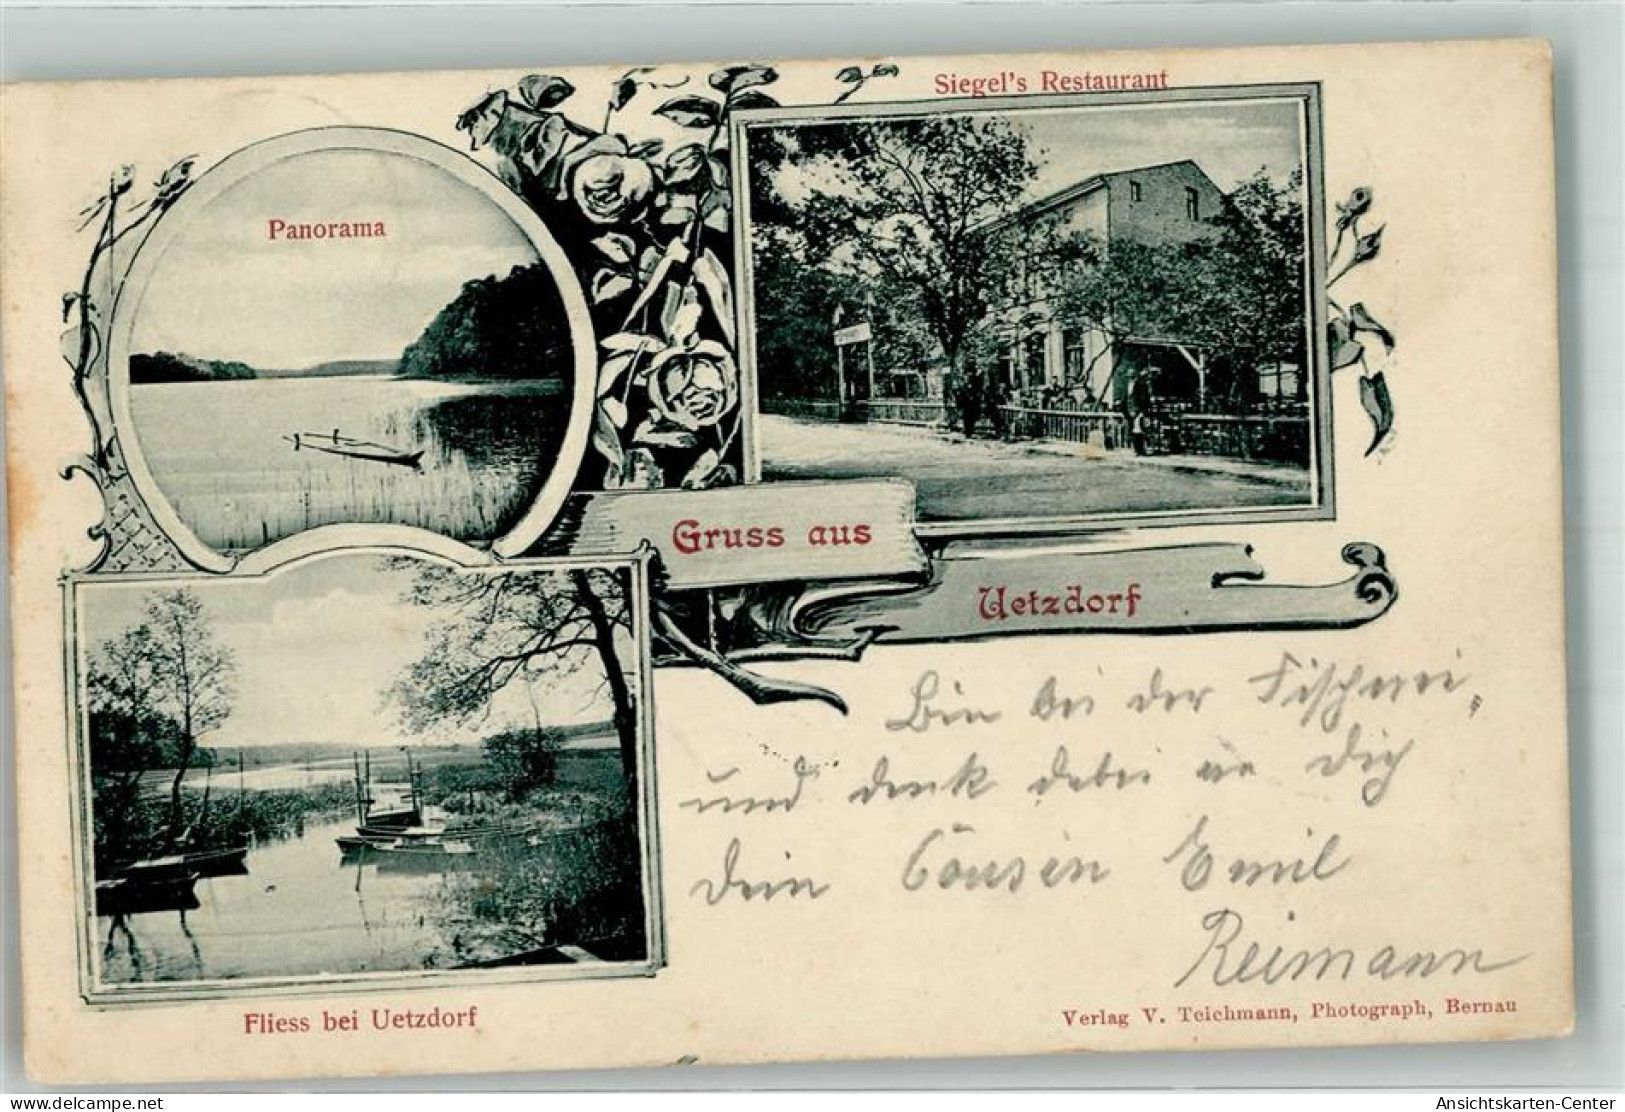 Siegel's Restaurant
Panorama
Gruss aus
Uetzdorf
Bin bei der Fischerei,
und denk dabei an Dich
Dein Cousin Emil
Reimann
Fliess bei Uetzdorf
Verlag V. Teichmann, Photograph, Bernau
delcampe.net
Ansichtskarten-Center